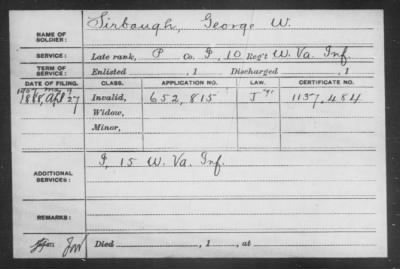 NAME OF SOLDIER: Sirbaugh, George W.
SERVICE: Late rank, P Co. I, 10 Reg't W. Va. Inf.
TERM OF SERVICE: Enlisted , 1 Discharged , 1
DATE OF FILING. CLASS. APPLICATION NO. LAW. CERTIFICATE NO.
1907 May 9
1888, Apl 27 Invalid, 652,815 J 1137,484
Widow,
Minor,
ADDITIONAL SERVICES: I, 15 W. Va. Inf.
REMARKS:
Died , 1 , at